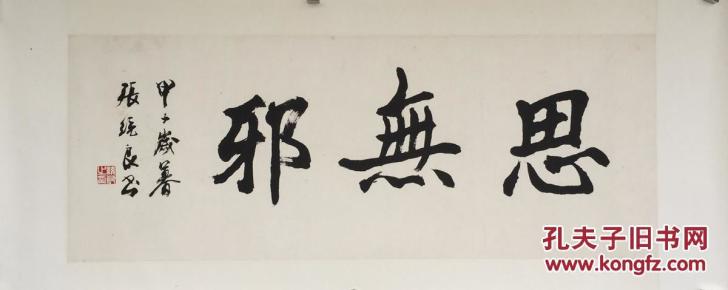 思無邪
甲子歲暮
張統良書
孔夫子旧书网
www.kongfz.com